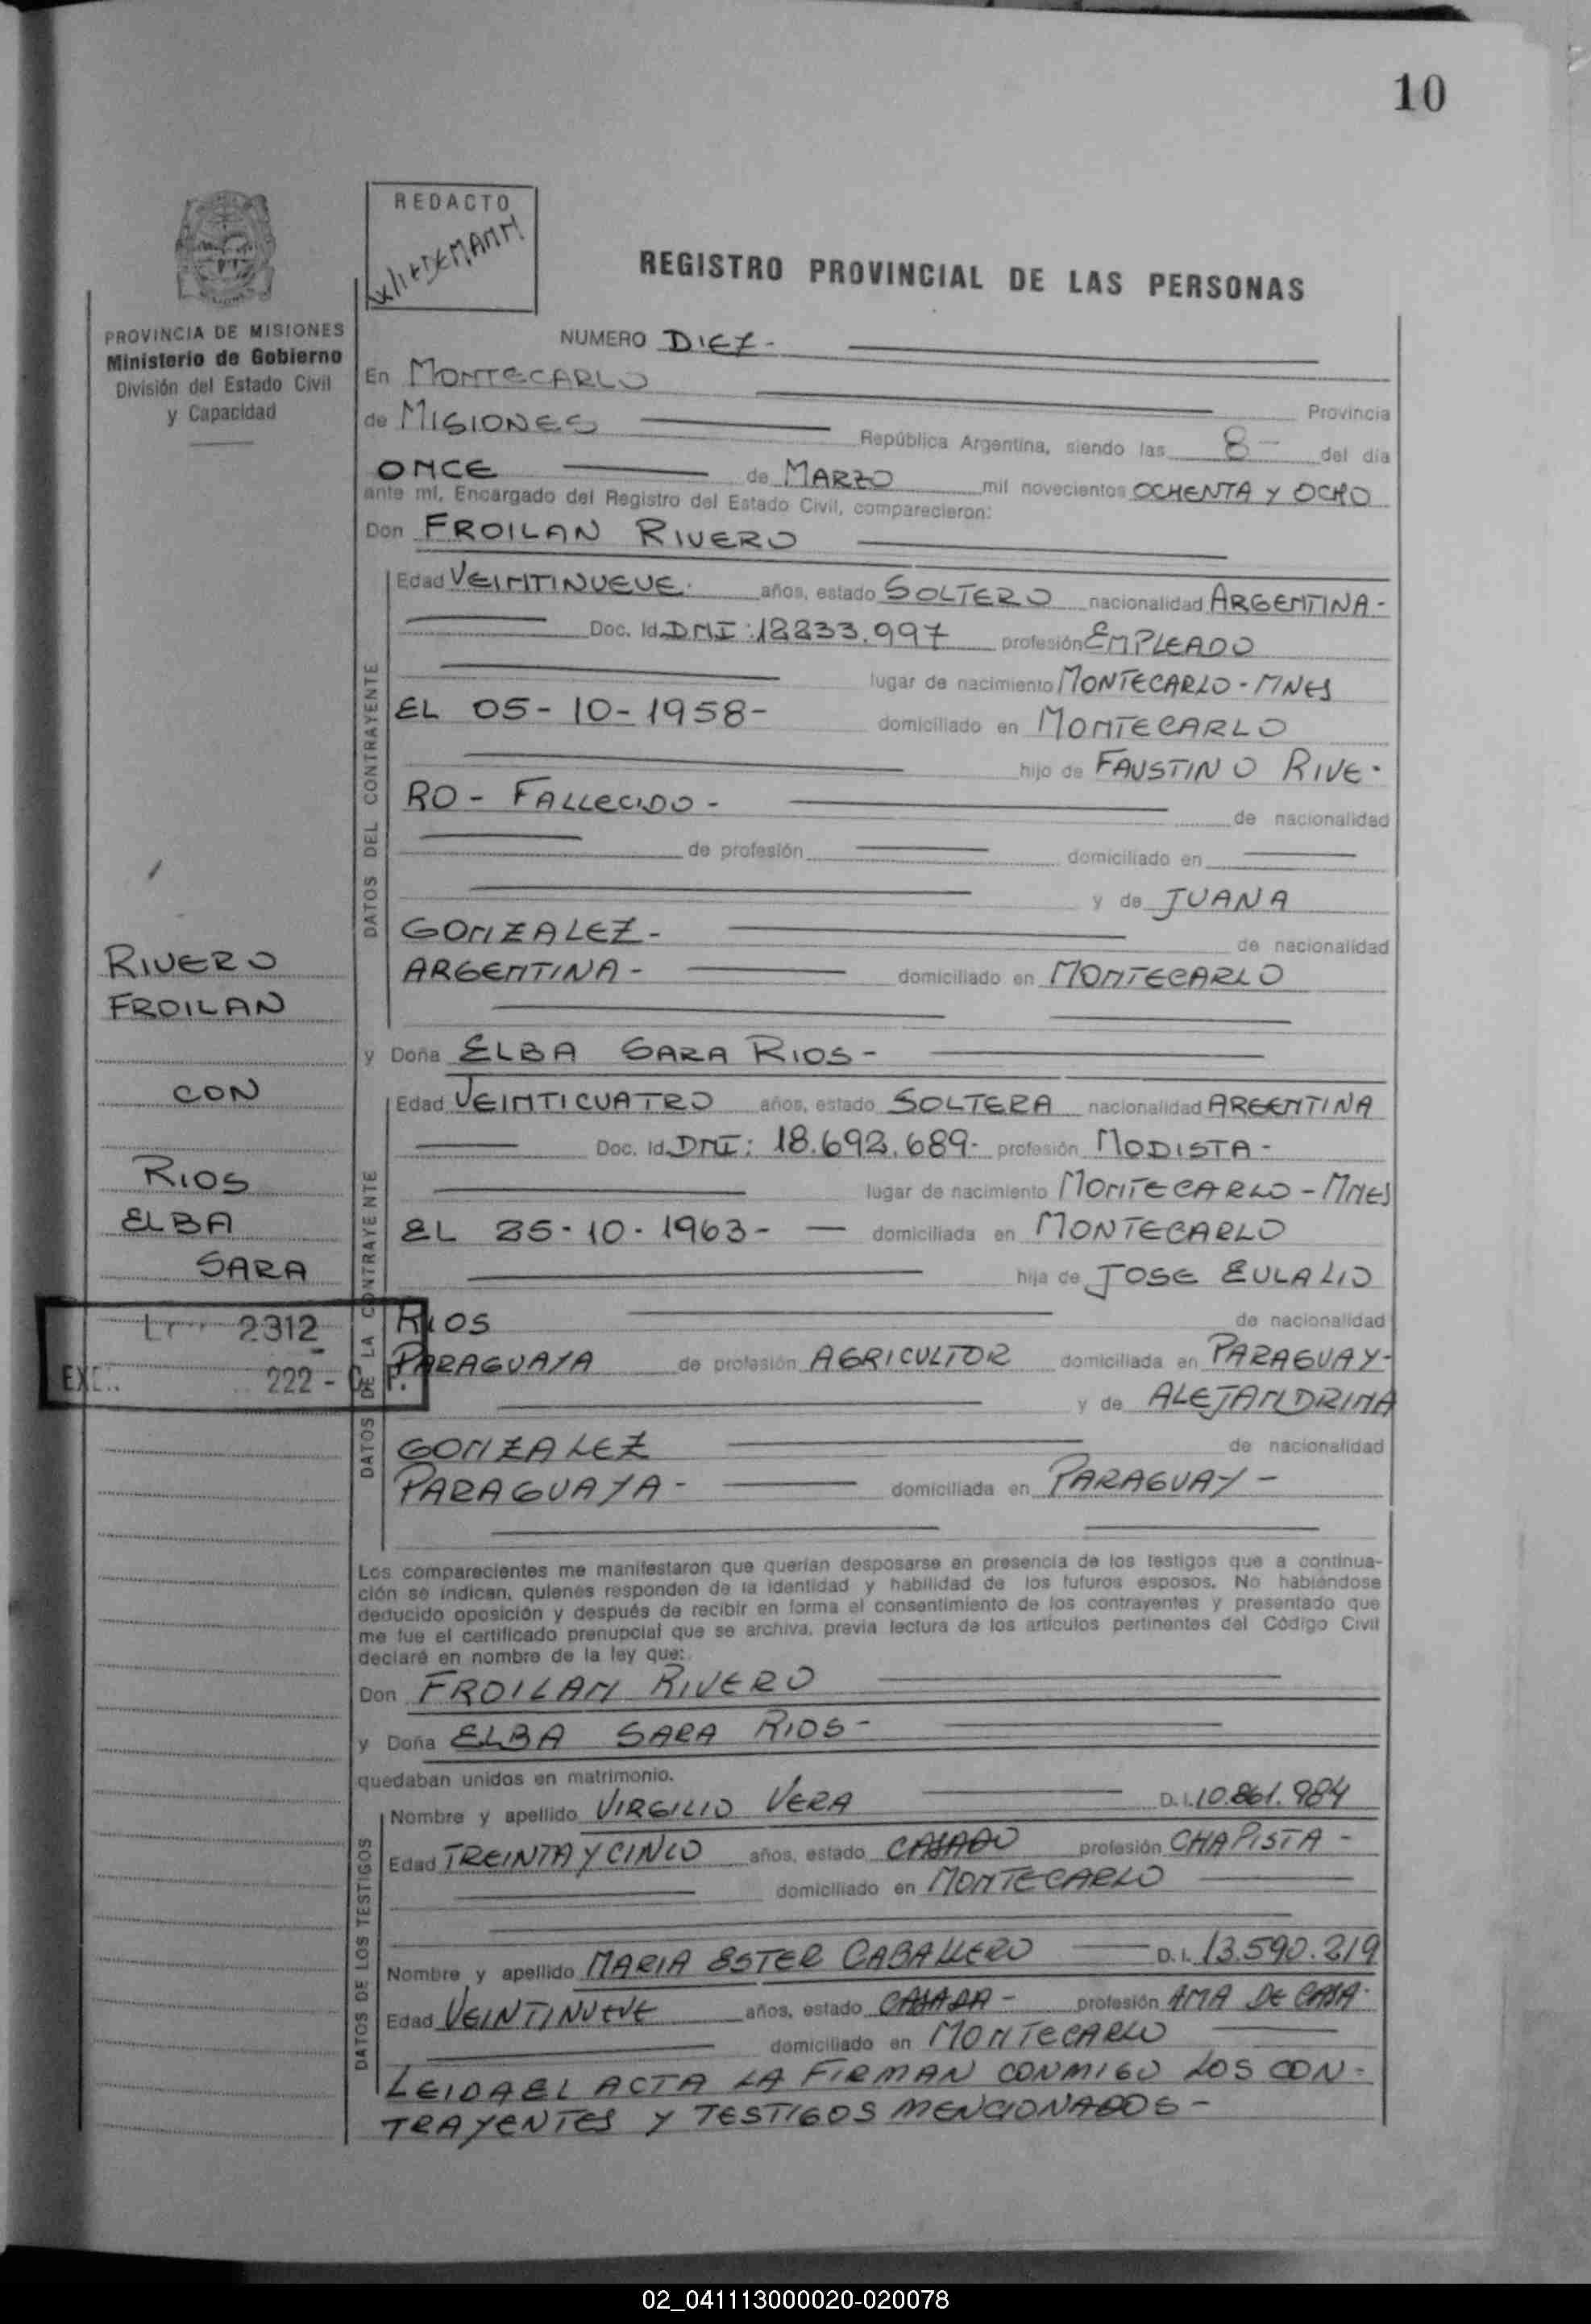 10
REDACTO
WIEDEMANN
REGISTRO PROVINCIAL DE LAS PERSONAS
PROVINCIA DE MISIONES
Ministerio de Gobierno
División del Estado Civil
y Capacidad
NUMERO DIEZ -
En MONTECARLO
Provincia
de MISIONES República Argentina, siendo las 8 - del día
ONCE de MARZO mil novecientos OCHENTA Y OCHO
ante mí, Encargado del Registro del Estado Civil, comparecieron:
Don FROILAN RIVERO
DATOS DEL CONTRAYENTE
Edad VEINTINUEVE. años, estado SOLTERO nacionalidad ARGENTINA -
Doc. Id. DNI: profesión EMPLEADO
lugar de nacimiento MONTECARLO - MNES
EL 05 - 10 - 1958 - domiciliado en MONTECARLO
hijo de FAUSTINO RIVE -
RO - FALLECIDO - de nacionalidad
de profesión domiciliado en
y de JUANA
GONZALEZ - de nacionalidad
ARGENTINA - domiciliado en MONTECARLO
RIVERO
FROILAN
CON
RIOS
ELBA
SARA
2312
222 -
y Doña ELBA SARA RIOS -
DATOS DE LA CONTRAYENTE
Edad VEINTICUATRO años, estado SOLTERA nacionalidad ARGENTINA
Doc. Id. DNI: 18.692.689 - profesión MODISTA -
lugar de nacimiento MONTECARLO - MNES
EL 25 - 10 - 1963 - domiciliada en MONTECARLO
hija de JOSE EULALIO
RIOS de nacionalidad
PARAGUAYA de profesión AGRICULTOR domiciliada en PARAGUAY -
y de ALEJANDRINA
GONZALEZ de nacionalidad
PARAGUAYA - domiciliada en PARAGUAY -
Los comparecientes me manifestaron que querían desposarse en presencia de los testigos que a continua-
ción se indican, quienes responden de la identidad y habilidad de los futuros esposos. No habiéndose
deducido oposición y después de recibir en forma el consentimiento de los contrayentes y presentado que
me fue el certificado prenupcial que se archiva, previa lectura de los artículos pertinentes del Código Civil
declaré en nombre de la ley que:
Don FROILAN RIVERO
y Doña ELBA SARA RIOS -
quedaban unidos en matrimonio.
DATOS DE LOS TESTIGOS
Nombre y apellido VIRGILIO VERA D. I. 10.861.984
Edad TREINTA Y CINCO años, estado CASADO profesión CHAPISTA -
domiciliado en MONTECARLO
Nombre y apellido MARIA ESTER CABALLERO D. I. 13.590.219
Edad VEINTINUEVE años, estado CASADA - profesión AMA DE CASA.
domiciliado en MONTECARLO
LEIDA EL ACTA LA FIRMAN CONMIGO LOS CON -
TRAYENTES Y TESTIGOS MENCIONADOS -
02_041113000020-020078